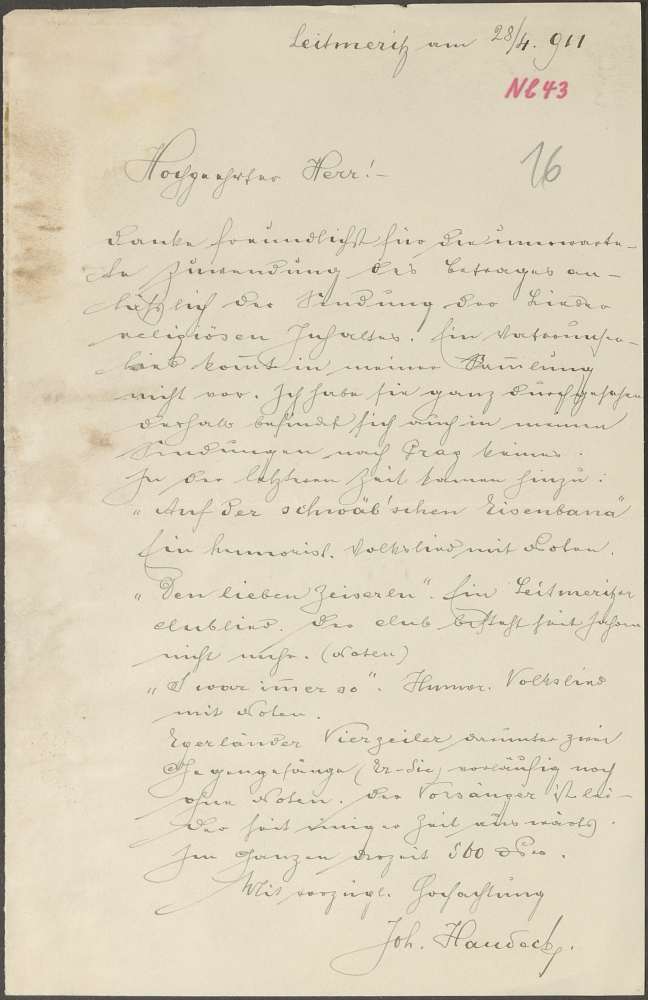 Leitmeritz am 28/4. 911
Nl 43
16
Hochgeehrter Herr! –
Danke freundlichst für die unerwarte-
te Zuwendung des Betrages an-
läßlich der Sendung der Lieder
religiösen Inhaltes. Ein Vaterunser-
lied kom̄t in meiner Sam̄lung
nicht vor. Ich habe sie ganz durchgesehen
deshalb befindet sich auch in meinen
Sendungen nach Prag keines.
In der letzteren Zeit kamen hinzu:
„Auf der schwäb'schen Eisenbana"
Ein humorist. Volkslied mit Noten.
„Den lieben Zeiserln". Ein Leitmeritzer
Clublied. Der Club besteht seit Jahren
nicht mehr. (Noten)
„S war im̄er so". Humor. Volkslied
mit Noten.
Egerländer Vierzeiler darunter zwei
Gegengesänge (Er-Sie) vorläufig noch
ohne Noten. Der Vorsänger ist lei-
der seit einiger Zeit auswärts.
Im Ganzen derzeit 560 Nro.
Mit vorzügl. Hochachtung
Joh. Haudeck.